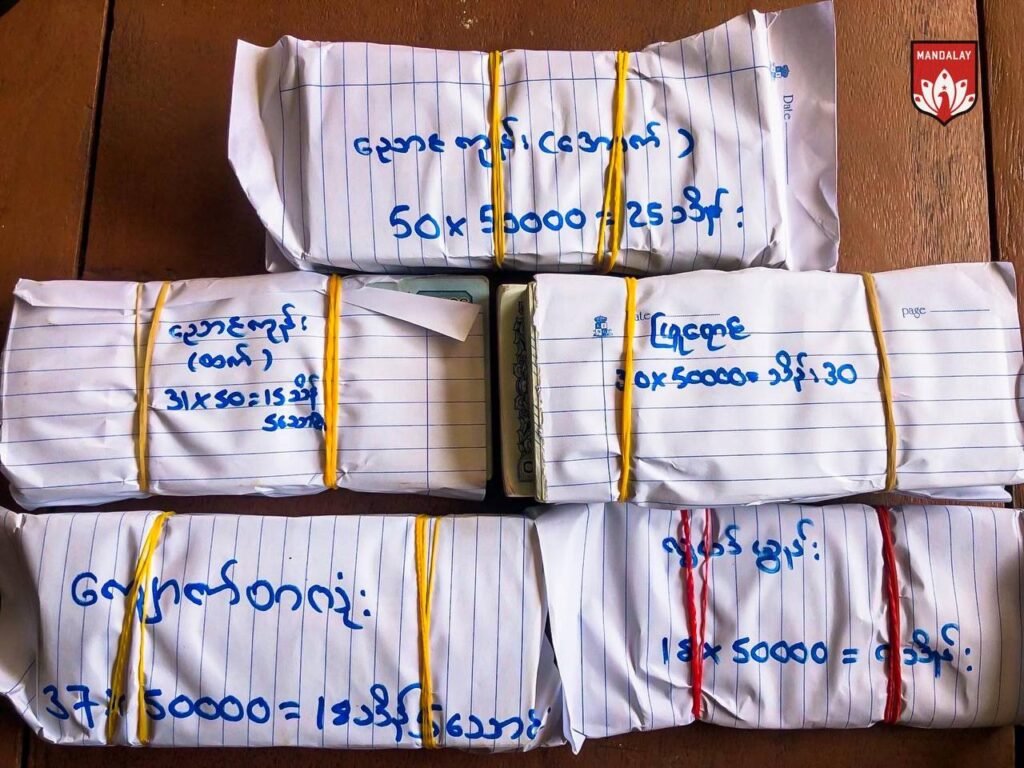 MANDALAY
Date
ညောင်ကျွန်း (အောက်)
50 x 50000 = 25 သိန်း
ညောင်ကျွန်း
(ထက်)
31 x 50 = 15 သိန်း
5 သောင်း
Date page
x 50000 = သိန်း 30
37 x 50000 = 18 သိန်း 5 သောင်း
18 x 50000 = ၉ သိန်း